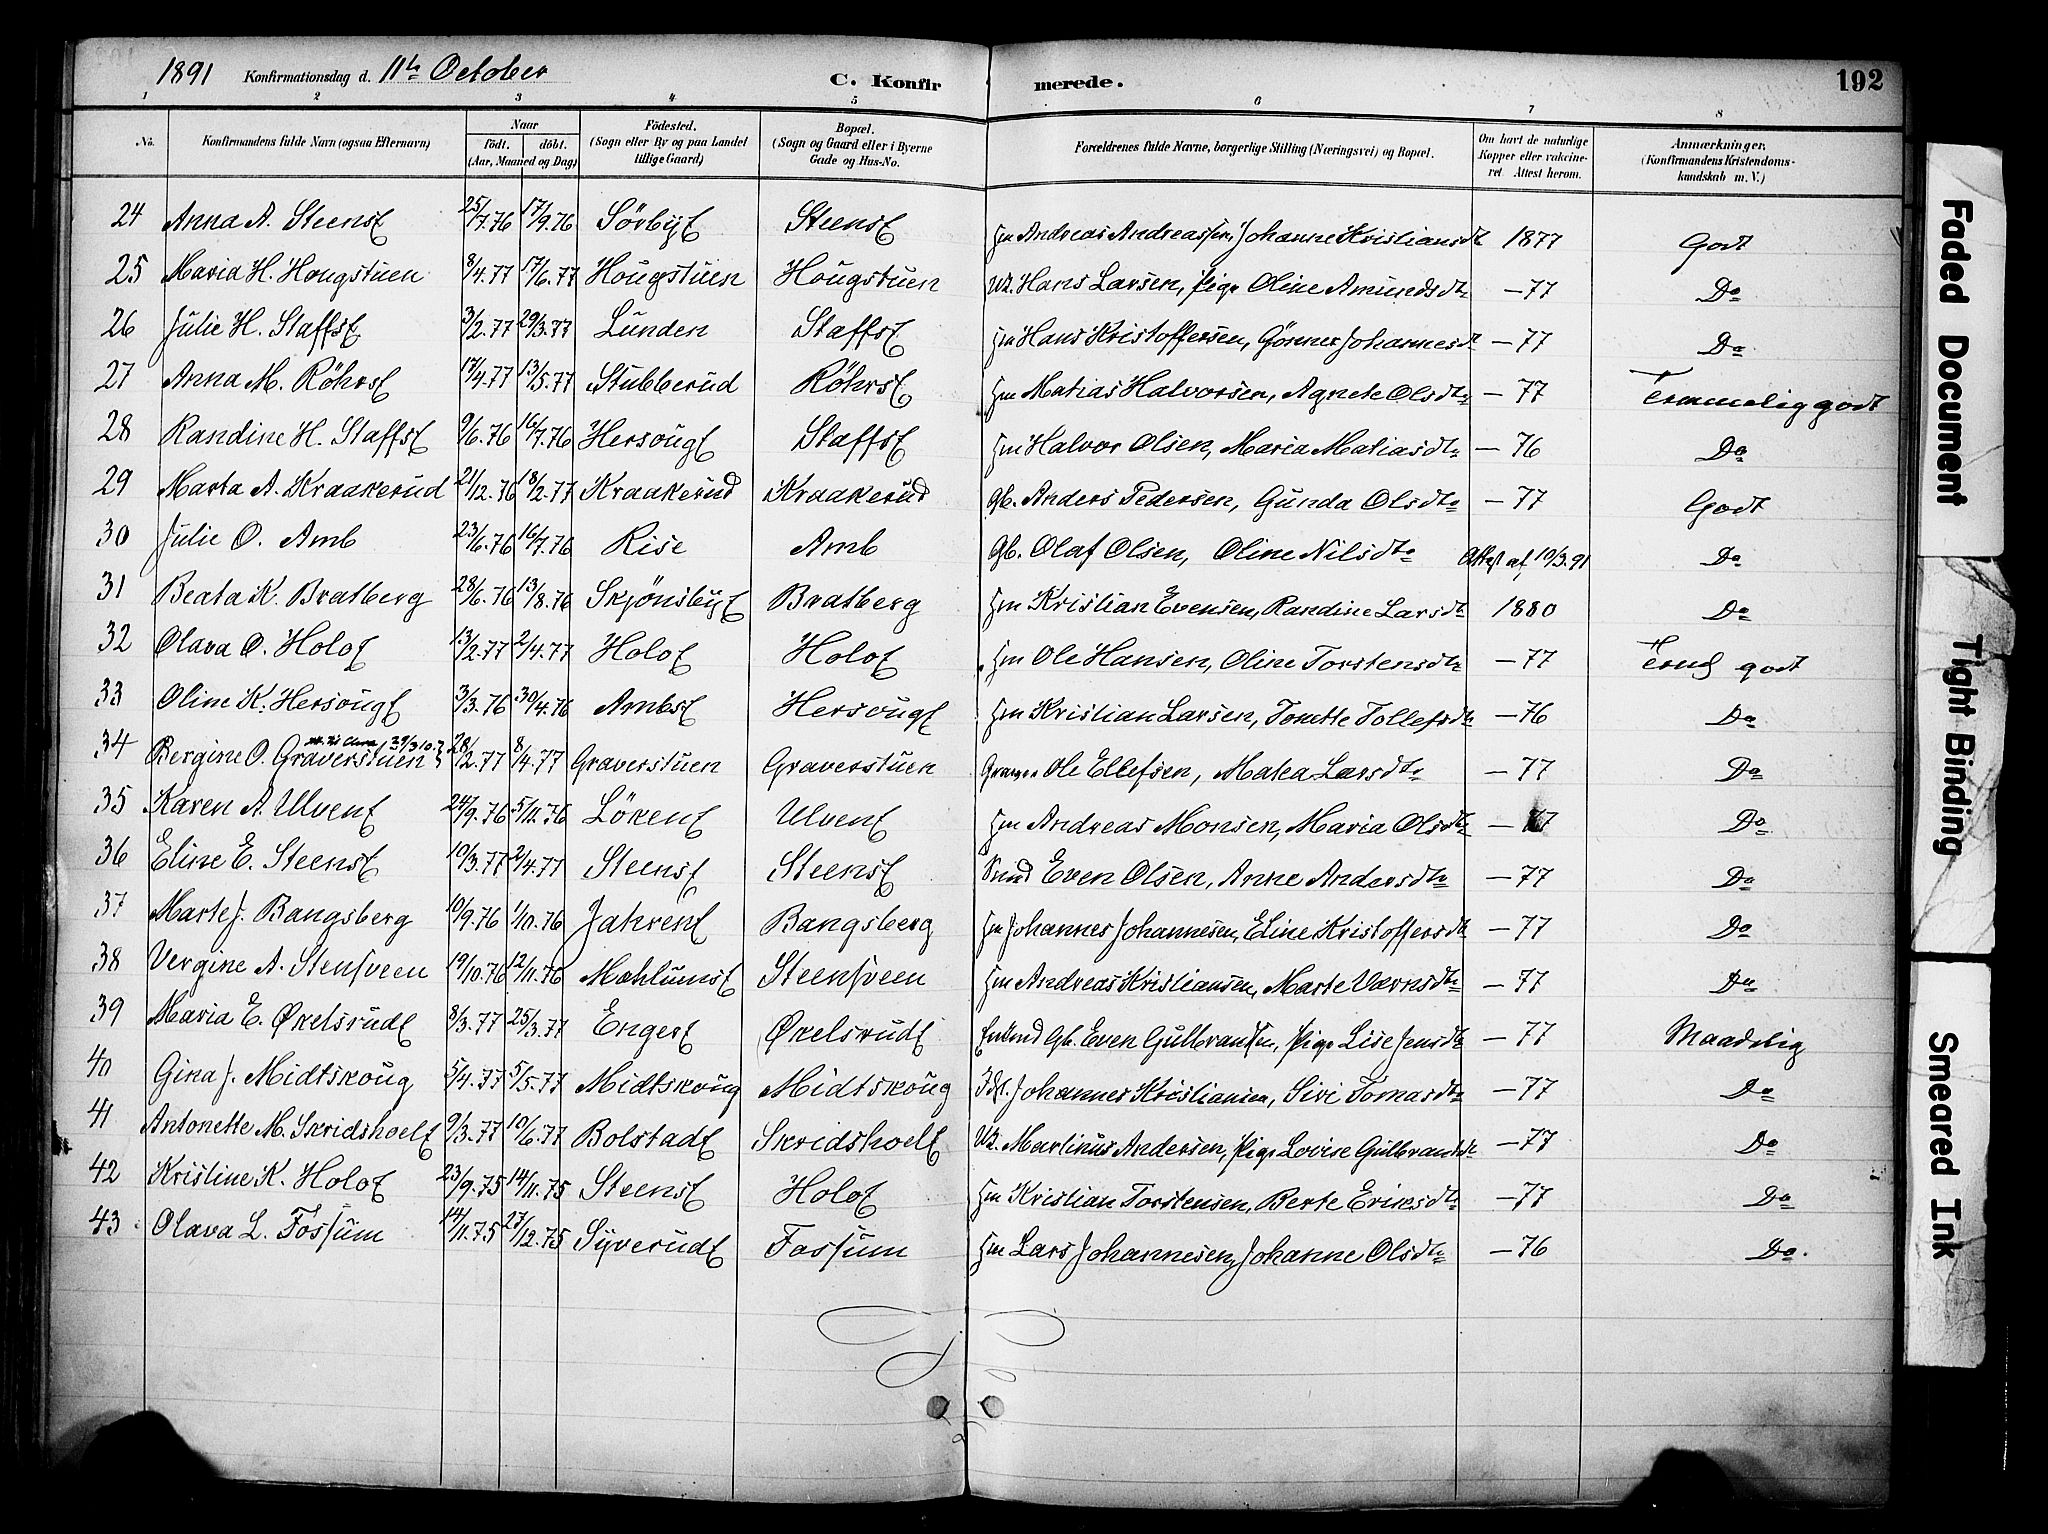 1891 Konfirmationsdag d. 11te October C. Konfirmerede. 192
1 2 3 4 5 6 7 8
No. Konfirmandens fulde Navn (ogsaa Efternavn) Naar födt. döbt. (Aar, Maaned og Dag) Födested. (Sogn eller By og paa Landet tillige Gaard) Bopæl. (Sogn og Gaard eller i Byerne Gade og Hus-No. Forældrenes fulde Navne, borgerlige Stilling (Næringsvei) og Bopæl. Om havt de naturlige Kopper eller vakcineret Attest herom. Anmærkninger. (Konfirmandens Kristendomskundskab m. V.)
24 Anna A. Steense 25/7.76 17/9.76 Sörbye Steense Hm Andreas Andreassen, Johanne Kristiansdtr 1877 Godt
25 Maria H. Hougstuen 8/4.77 17/6.77 Hougstuen Hougstuen Uk. Hans Larsen, Pige Oline Amundsdtr —77 Do
26 Julie H. Staffse 3/2.77 29/3.77 Lunden Staffse Hm Hans Kristoffersen, Gönner Johannesdtr —77 Do
27 Anna M. Röhrse 17/4.77 13/5.77 Stubberud Röhrse Hm Matias Halvorsen, Agnete Olsdtr —77 Temmelig godt
28 Randine H. Staffse 9/6.76 16/7.76 Hersouge Staffse Hm Halvor Olsen, Maria Matiasdtr —76 Do
29 Marta A. Kraakerud 21/12.76 18/2.77 Kraakerud Kraakerud Gb. Anders Pedersen, Gunda Olsdtr —77 Godt
30 Julie O. Amb 23/6.76 16/7.76 Rise Amb Gb. Olaf Olsen, Oline Nilsdtr Attest af 10/3.91 Do
31 Beata K. Bratberg 28/6.76 13/8.76 Skjönsbye Bratberg Hm Kristian Evensen, Randine Larsdtr 1880 Do
32 Olava O. Holoe 13/2.77 2/4.77 Holoe Holoe Hm Ole Hansen, Oline Torstensdtr —77 Teml godt
33 Oline K. Hersouge 3/3.76 30/4.76 Ambse Hersouge Hm Kristian Larsen, Tonette Tollefsdtr —76 Do
34 Bergine O. Graverstuen 28/2.77 8/4.77 Graverstuen Graverstuen Graver Ole Ellefsen, Matea Larsdtr —77 Do
35 Karen A. Ulvene 24/9.76 5/11.76 Lökene Ulvene Hm Andreas Monsen, Maria Olsdtr —77 Do
36 Eline E. Steense 10/3.77 2/4.77 Steense Steense Smed Even Olsen, Anne Andersdtr —77 Do
37 Marte J. Bangsberg 10/9.76 1/10.76 Jahrene Bangsberg Hm Johannes Johannesen, Eline Kristoffersdtr —77 Do
38 Vergine A. Stensveen 19/10.76 12/11.76 Mahlumse Steensveen Hm Andreas Kristiansen, Marte Værnsdtr —77 Do
39 Maria E. Økelsrude 8/3.77 25/3.77 Engere Økelsrude Enkmd Gb. Even Gulbrandsen, Pige Lise Jensdtr —77 Maadelig
40 Gina J. Midtskoug 5/4.77 5/5.77 Midtskoug Midtskoug Johannes Kristiansen, Sivi Tomasdtr —77 Do
41 Antonette M. Skridshole 9/3.77 10/6.77 Bolstade Skridshole Uk. Martinus Andersen, Pige Lovise Gulbrandsdtr —77 Do
42 Kristine K. Holoe 23/9.75 14/11.75 Steense Holoe Hm Kristian Torstensen, Berte Eriksdtr —77 Do
43 Olava L. Fossum 14/11.75 27/12.75 Syverude Fossum Hm Lars Johannesen, Johanne Olsdtr —76 Do.
Faded Document
Tight Binding
Smeared Ink